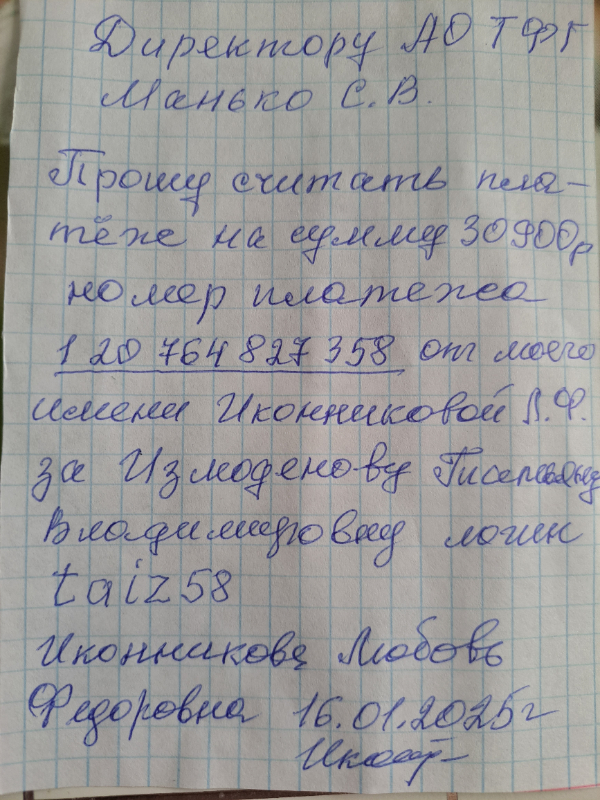 Директору АО ТФГ
Манько С.В.
Прошу считать пла-
тёже на сумму 30900р
номер платежа
120764827358 от моего
имени Иконниковой Л.Ф.
за Измоденову
Владимировну логин
taiz58
Иконникова Любовь
Федоровна 16.01.2025г